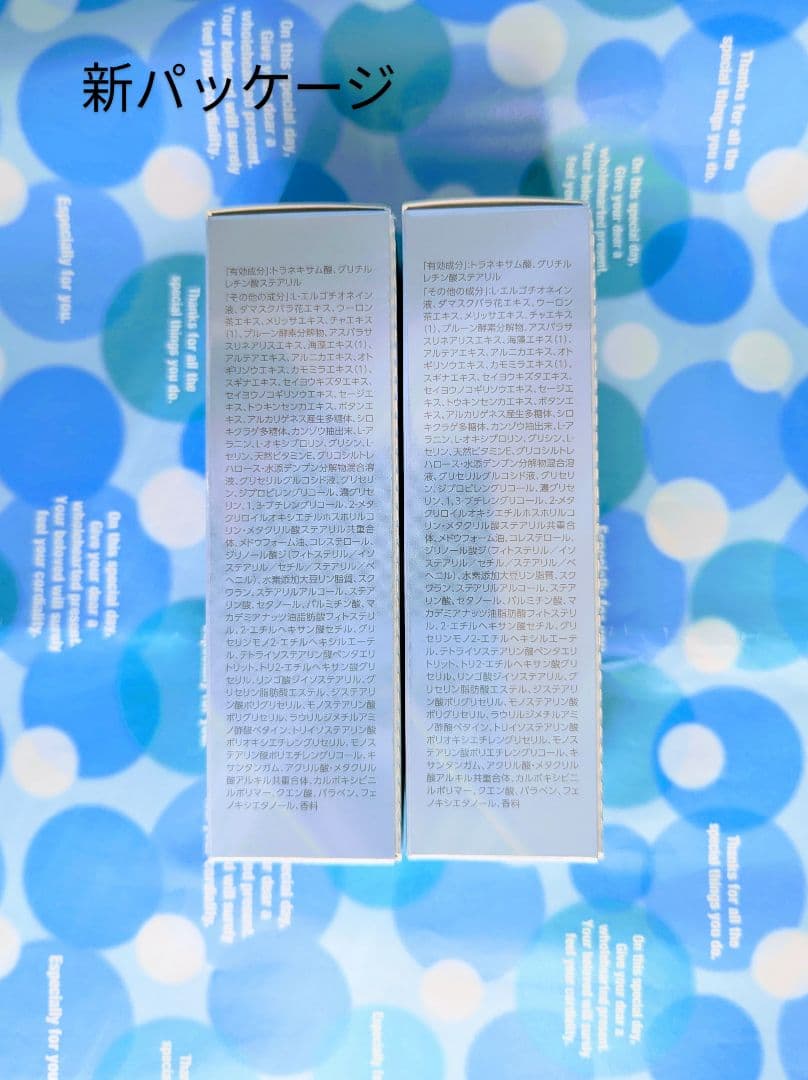 新パッケージ
「有効成分」:トラネキサム酸、グリチル
レチン酸ステアリル
「その他の成分」:L-エルゴチオネイン
液、ダマスクバラ花エキス、ウーロン
茶エキス、メリッサエキス、チャエキス
(1)、プルーン酵素分解物、アスパラサ
スリネアリスエキス、海藻エキス(1)、
アルテアエキス、アルニカエキス、オト
ギリソウエキス、カモミラエキス(1)、
スギナエキス、セイヨウキズタエキス、
セイヨウノコギリソウエキス、セージエ
キス、トウキンセンカエキス、ボタンエ
キス、アルカリゲネス産生多糖体、シロ
キクラゲ多糖体、カンゾウ抽出末、L-ア
ラニン、L-オキシプロリン、グリシン、L-
セリン、天然ビタミンE、グリコシルトレ
ハロース・水添デンプン分解物混合溶
液、グリセリルグルコシド液、グリセリ
ン、ジプロピレングリコール、濃グリセ
リン、1,3-ブチレングリコール、2-メタ
クリロイルオキシエチルホスホリルコ
リン・メタクリル酸ステアリル共重合
体、メドウフォーム油、コレステロール、
ジリノール酸ジ(フィトステリル/イソ
ステアリル/セチル/ステアリル/ベ
ヘニル)、水素添加大豆リン脂質、スク
ワラン、ステアリルアルコール、ステア
リン酸、セタノール、パルミチン酸、マ
カデミアナッツ油脂肪酸フィトステリ
ル、2-エチルヘキサン酸セチル、グリ
セリンモノ2-エチルヘキシルエーテ
ル、テトライソステアリン酸ペンタエリ
トリット、トリ2-エチルヘキサン酸グリ
セリル、リンゴ酸ジイソステアリル、グ
リセリン脂肪酸エステル、ジステアリ
ン酸ポリグリセリル、モノステアリン酸
ポリグリセリル、ラウリルジメチルアミ
ノ酢酸ベタイン、トリイソステアリン酸
ポリオキシエチレングリセリル、モノス
テアリン酸ポリエチレングリコール、キ
サンタンガム、アクリル酸・メタクリル
酸アルキル共重合体、カルボキシビニ
ルポリマー、クエン酸、パラベン、フェ
ノキシエタノール、香料
「有効成分」:トラネキサム酸、グリチル
レチン酸ステアリル
「その他の成分」:L-エルゴチオネイン
液、ダマスクバラ花エキス、ウーロン
茶エキス、メリッサエキス、チャエキス
(1)、プルーン酵素分解物、アスパラサ
スリネアリスエキス、海藻エキス(1)、
アルテアエキス、アルニカエキス、オト
ギリソウエキス、カモミラエキス(1)、
スギナエキス、セイヨウキズタエキス、
セイヨウノコギリソウエキス、セージエ
キス、トウキンセンカエキス、ボタンエ
キス、アルカリゲネス産生多糖体、シロ
キクラゲ多糖体、カンゾウ抽出末、L-ア
ラニン、L-オキシプロリン、グリシン、L-
セリン、天然ビタミンE、グリコシルトレ
ハロース・水添デンプン分解物混合溶
液、グリセリルグルコシド液、グリセリ
ン、ジプロピレングリコール、濃グリセ
リン、1,3-ブチレングリコール、2-メタ
クリロイルオキシエチルホスホリルコ
リン・メタクリル酸ステアリル共重合
体、メドウフォーム油、コレステロール、
ジリノール酸ジ(フィトステリル/イソ
ステアリル/セチル/ステアリル/ベ
ヘニル)、水素添加大豆リン脂質、スク
ワラン、ステアリルアルコール、ステア
リン酸、セタノール、パルミチン酸、マ
カデミアナッツ油脂肪酸フィトステリ
ル、2-エチルヘキサン酸セチル、グリ
セリンモノ2-エチルヘキシルエーテ
ル、テトライソステアリン酸ペンタエリ
トリット、トリ2-エチルヘキサン酸グリ
セリル、リンゴ酸ジイソステアリル、グ
リセリン脂肪酸エステル、ジステアリ
ン酸ポリグリセリル、モノステアリン酸
ポリグリセリル、ラウリルジメチルアミ
ノ酢酸ベタイン、トリイソステアリン酸
ポリオキシエチレングリセリル、モノス
テアリン酸ポリエチレングリコール、キ
サンタンガム、アクリル酸・メタクリル
酸アルキル共重合体、カルボキシビニ
ルポリマー、クエン酸、パラベン、フェ
ノキシエタノール、香料
On this special day,
Give your dear a
wholehearted present.
Your beloved will surely
feel your cordiality.
Thanks for all the
special things you do.
On this special day,
Give your dear a
wholehearted present.
Your beloved will surely
feel your
Especially for you.
Thanks for all the
special things you do.
On this special day,
Give your dear a
wholehearted present.
Your beloved will surely
feel your cordiality.
Thanks for all the
special things you do.
On this special day,
Give your dear a
wholehearted present.
Your beloved will surely
feel your cordiality.
Especially for you
Especially for you.